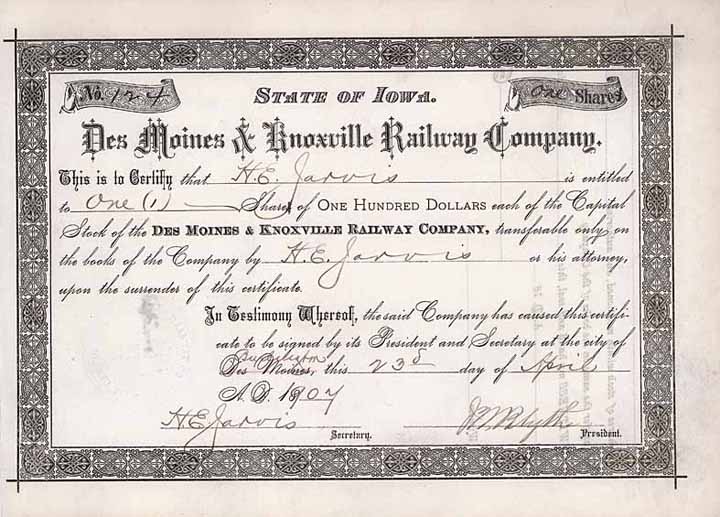 No. 124
STATE OF IOWA.
One Shares
Des Moines & Knoxville Railway Company.
This is to Certify that H.E. Jarvis is entitled
to One (1) Share of ONE HUNDRED DOLLARS each of the Capital
Stock of the DES MOINES & KNOXVILLE RAILWAY COMPANY, transferable only on
the books of the Company by H.E. Jarvis or his attorney,
upon the surrender of this certificate.
In Testimony Whereof, the said Company has caused this certifi-
cate to be signed by its President and Secretary at the city of
Burlington
Des Moines, this 23d day of April
A.D. 1907
H.E. Jarvis
Secretary.
President.